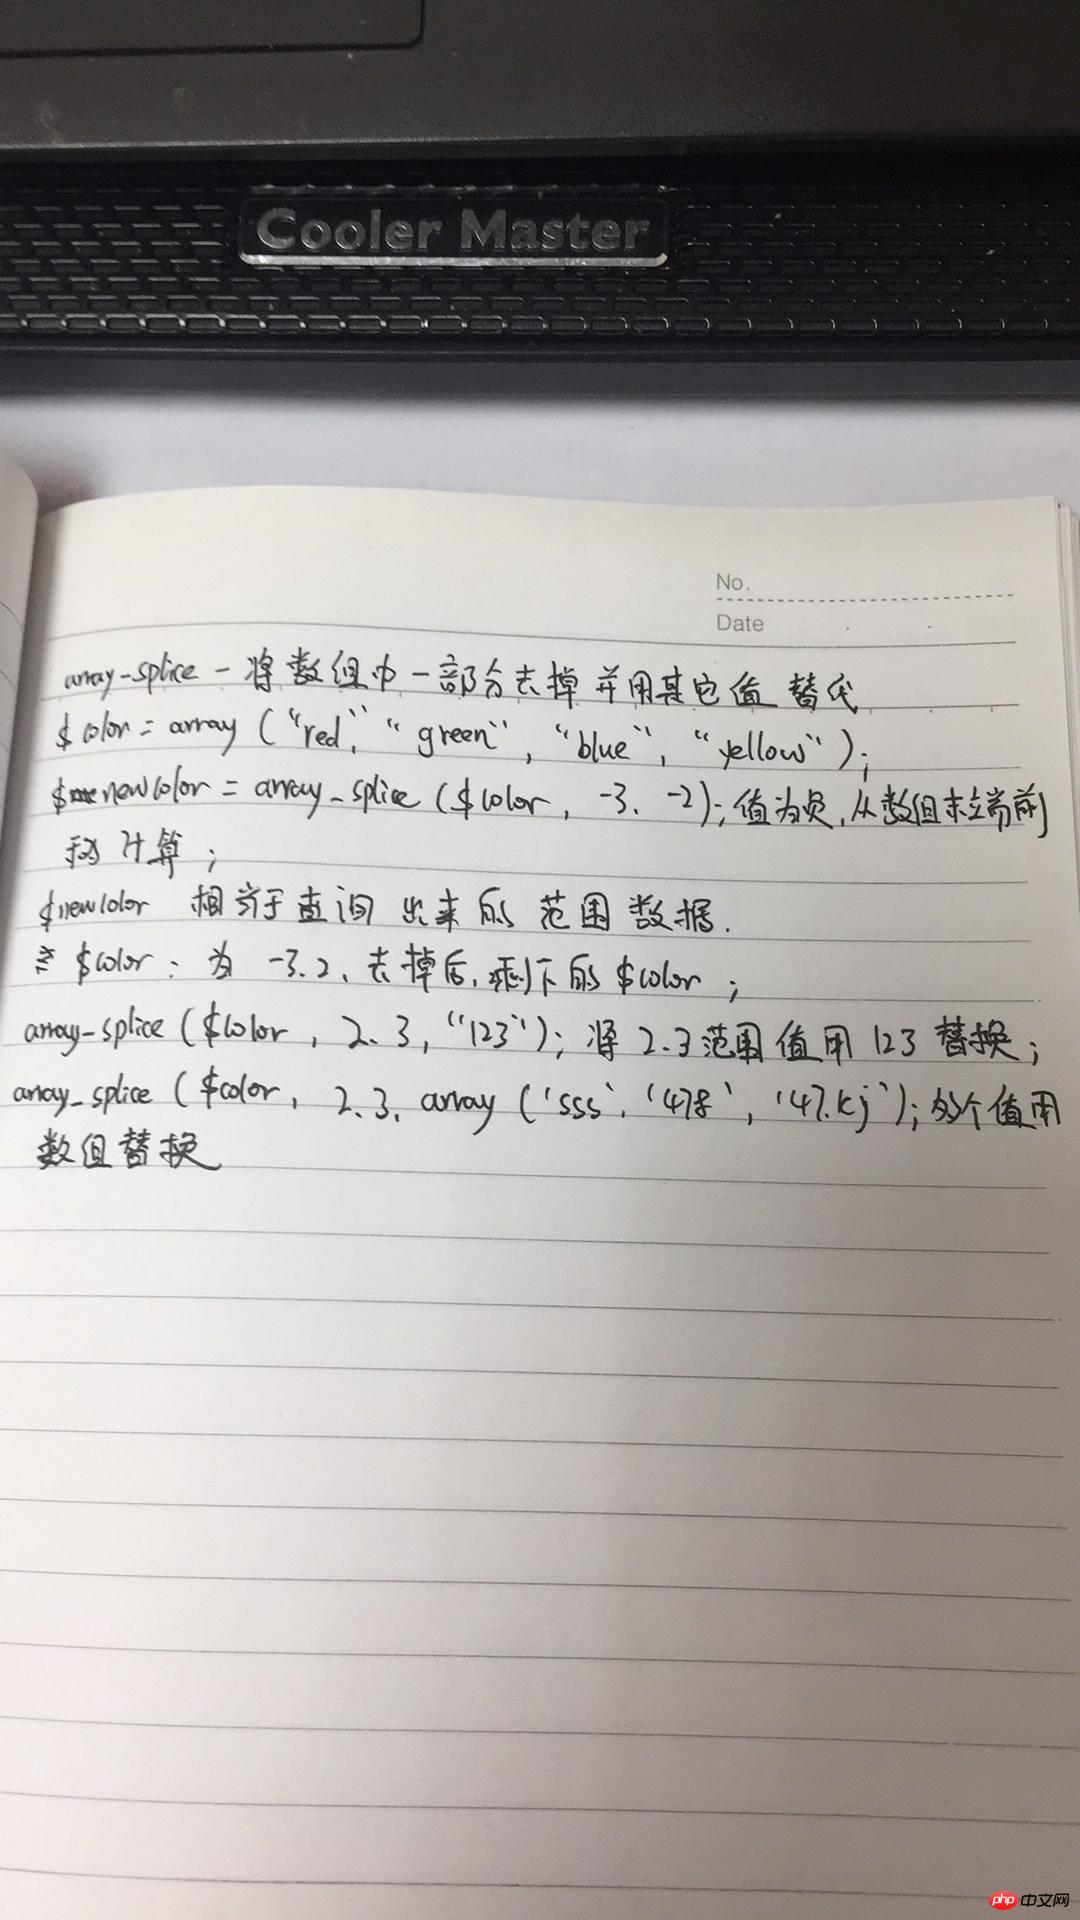 Cooler Master
No.
Date
array_splice — 将数组中一部分去掉并用其它值替代
$color = array ("red", "green", "blue", "yellow");
$newcolor = array_splice ($color, -3, -2); 值为负,从数组末端前
移计算;
$newcolor 相当于查询出来的范围数据.
$color: 为 -3.2、去掉后,剩下的$color;
array-splice ($color, 2.3, "123"); 将2.3范围值用123替换;
array_splice ($color, 2.3, array ('sss', '478', '47.kj'); 多个值用
数组替换
php 中文网